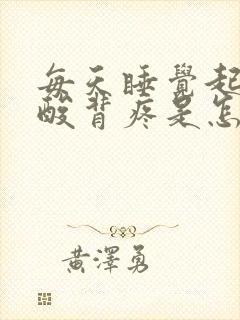 每天睡覺起
酸背疼是怎
黃澤勇